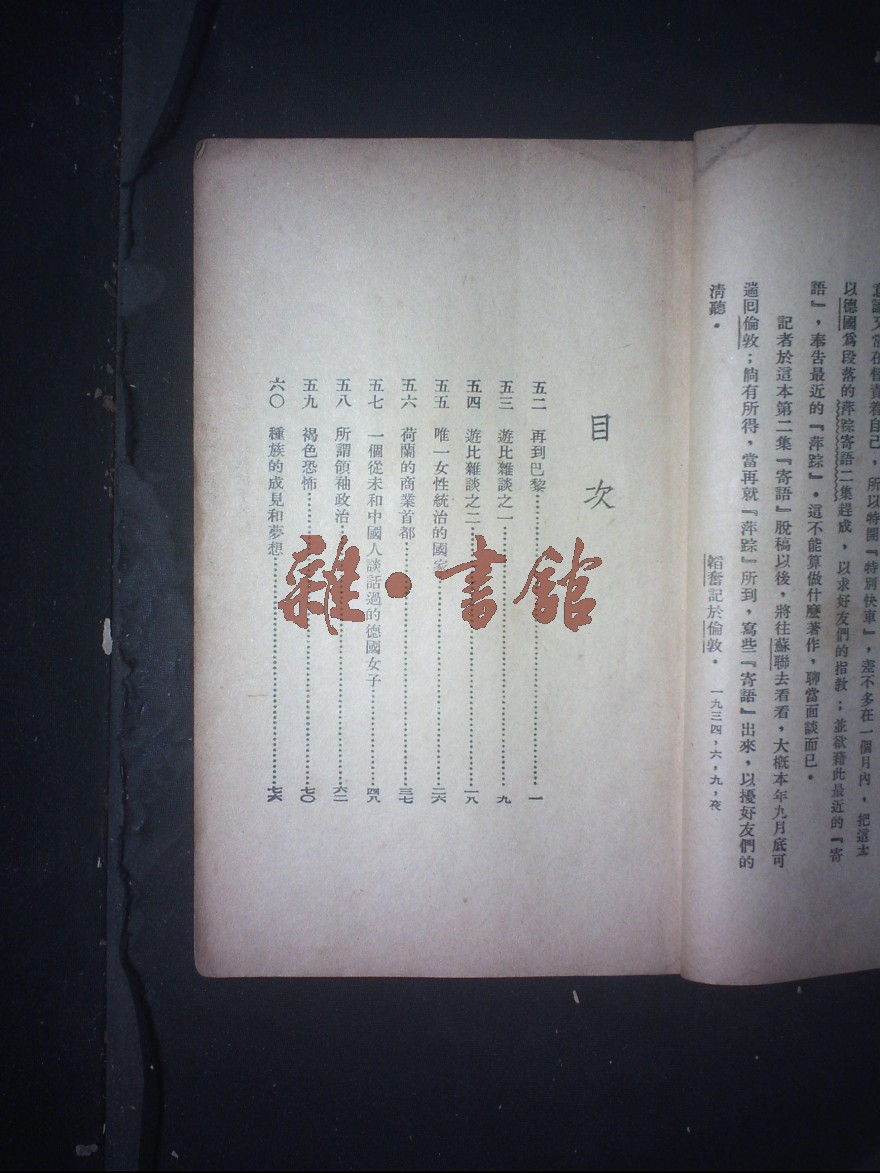 意識又常在督責着自己，所以特開『特別快車』，差不多在一個月內，把這本
以德國爲段落的萍踪寄語二集趕成，以求好友們的指教；並欲藉此最近的『寄
語』，奉告最近的『萍踪』。這不能算做什麼著作，聊當面談而已。
記者於這本第二集『寄語』脫稿以後，將往蘇聯去看看，大概本年九月底可
遄回倫敦；倘有所得，當再就『萍踪』所到，寫些『寄語』出來，以擾好友們的
清聽。
韜奮記於倫敦。 一九三四，六，九，夜
目次
五二 再到巴黎……一
五三 遊比雜談之一……九
五四 遊比雜談之二……一八
五五 唯一女性統治的國家……二六
五六 荷蘭的商業首都……三七
五七 一個從未和中國人談話過的德國女子……四八
五八 所謂領袖政治……六二
五九 褐色恐怖……七〇
六〇 種族的成見和夢想……七六
雜·書館